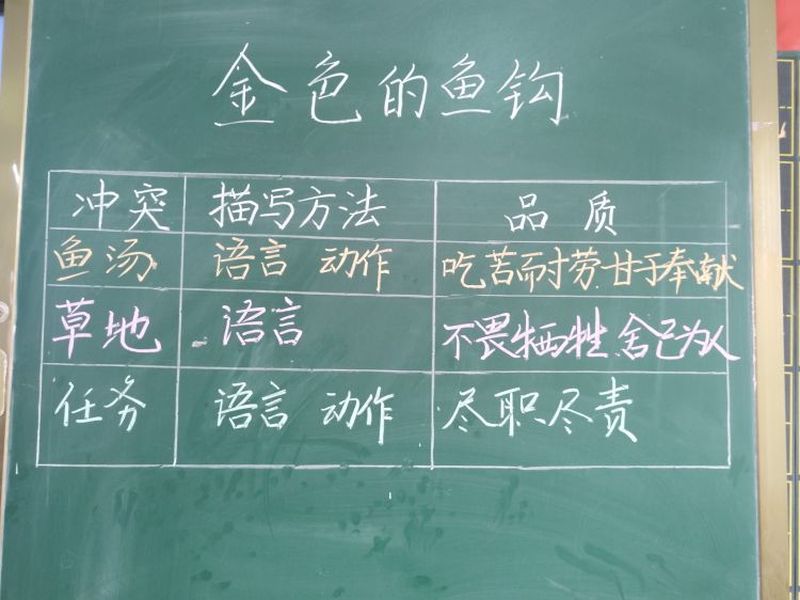 金色的鱼钩
冲突 描写方法 品质
鱼汤 语言 动作 吃苦耐劳 甘于奉献
草地 语言 不畏牺牲 舍己为人
任务 语言 动作 尽职尽责